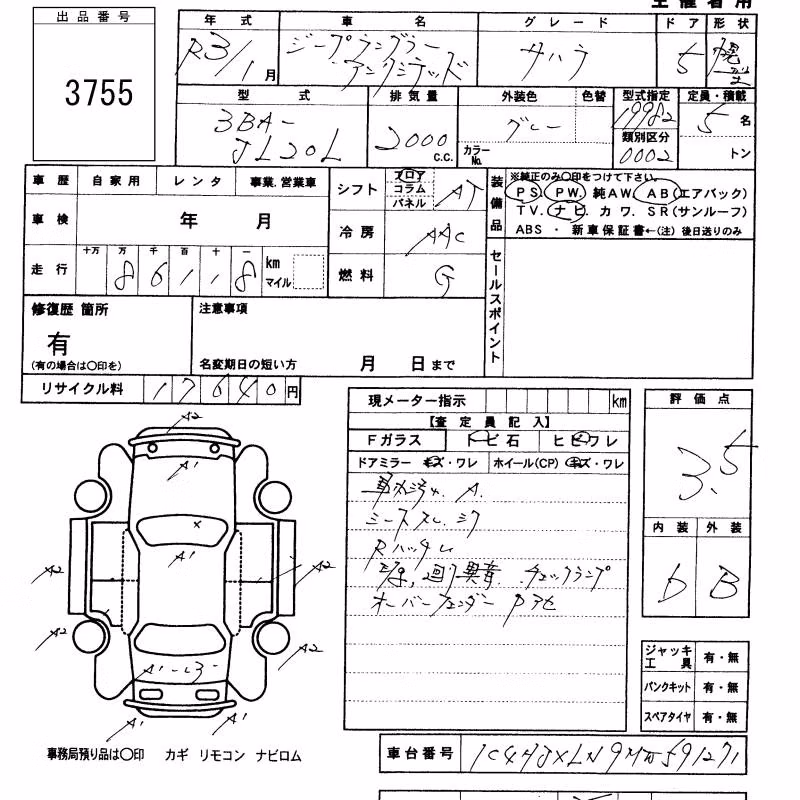 主催者用
出品番号
3755
年式 車名 グレード ドア 形状
R3/1月 ジープラングラー アンリミテッド サハラ 5 幌型
型式 排気量 外装色 色替 型式指定 定員・積載
3BA-
JL20L
2000 C.C.
グレー
カラーNo.
19982
類別区分
0002
5名
トン
車歴 自家用 レンタ 事業.営業車
車検 年 月
走行 十万 万 千 百 十 一
86118 km マイル
シフト フロア コラム パネル AT
冷房 AAC
燃料 G
装備品
※純正のみ○印をつけて下さい。
PS. PW. 純AW. AB(エアバック)
TV. ナビ. カワ. SR(サンルーフ)
ABS ・ 新車保証書←(注) 後日送りのみ
セールスポイント
修復歴 箇所
有
(有の場合は○印を)
注意事項
名変期日の短い方 月 日まで
リサイクル料 17640円
現メーター指示 km
【査定員記入】
Fガラス トビ石 ヒビワレ
ドアミラー キズ・ワレ ホイール(CP) キズ・ワレ
シーススレ.シワ
チェックランプ
オーバーフェンダー
評価点
3.5
内装 外装
D B
A2
A1
A1
A2
A2
A2
A2
A1
A1
ジャッキ工具 有・無
パンクキット 有・無
スペアタイヤ 有・無
事務局預り品は○印 カギ リモコン ナビロム
車台番号 1C4HJXLN9MW591271